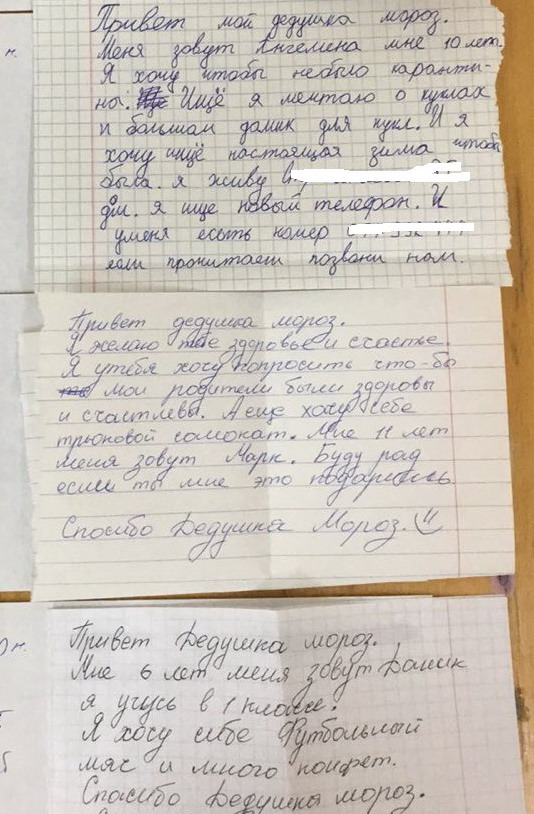 Привет мой дедушка мороз.
Меня зовут Ангелена мне 10 лет.
Я хочу чтобы небыло каранти-
на. Ищё я мечтаю о куклах
и большом домик для кукл. И я
хочу ищё настоящая зима чтобы
была. я живу
дм. я ище новый телефон. И
уменя есоть номер
если прочитаеш позвони нам.
Привет дедушка мороз.
Я желаю тебе здоровье и счастье.
Я утебя хочу попросить что-бы
мои родители были здоровы
и счастлевы. А еще хочу себе
трюковой самокат. Мне 11 лет
меня зовут Марк. Буду рад
если ты мне это подаришь
Спосибо Дедушка Мороз.
Привет Дедушка мороз.
Мне 6 лет меня зовут Даник
я учусь в 1 классе.
Я хочу себе Футбольный
мяч и много конфет.
Спосибо Дедушка мороз.